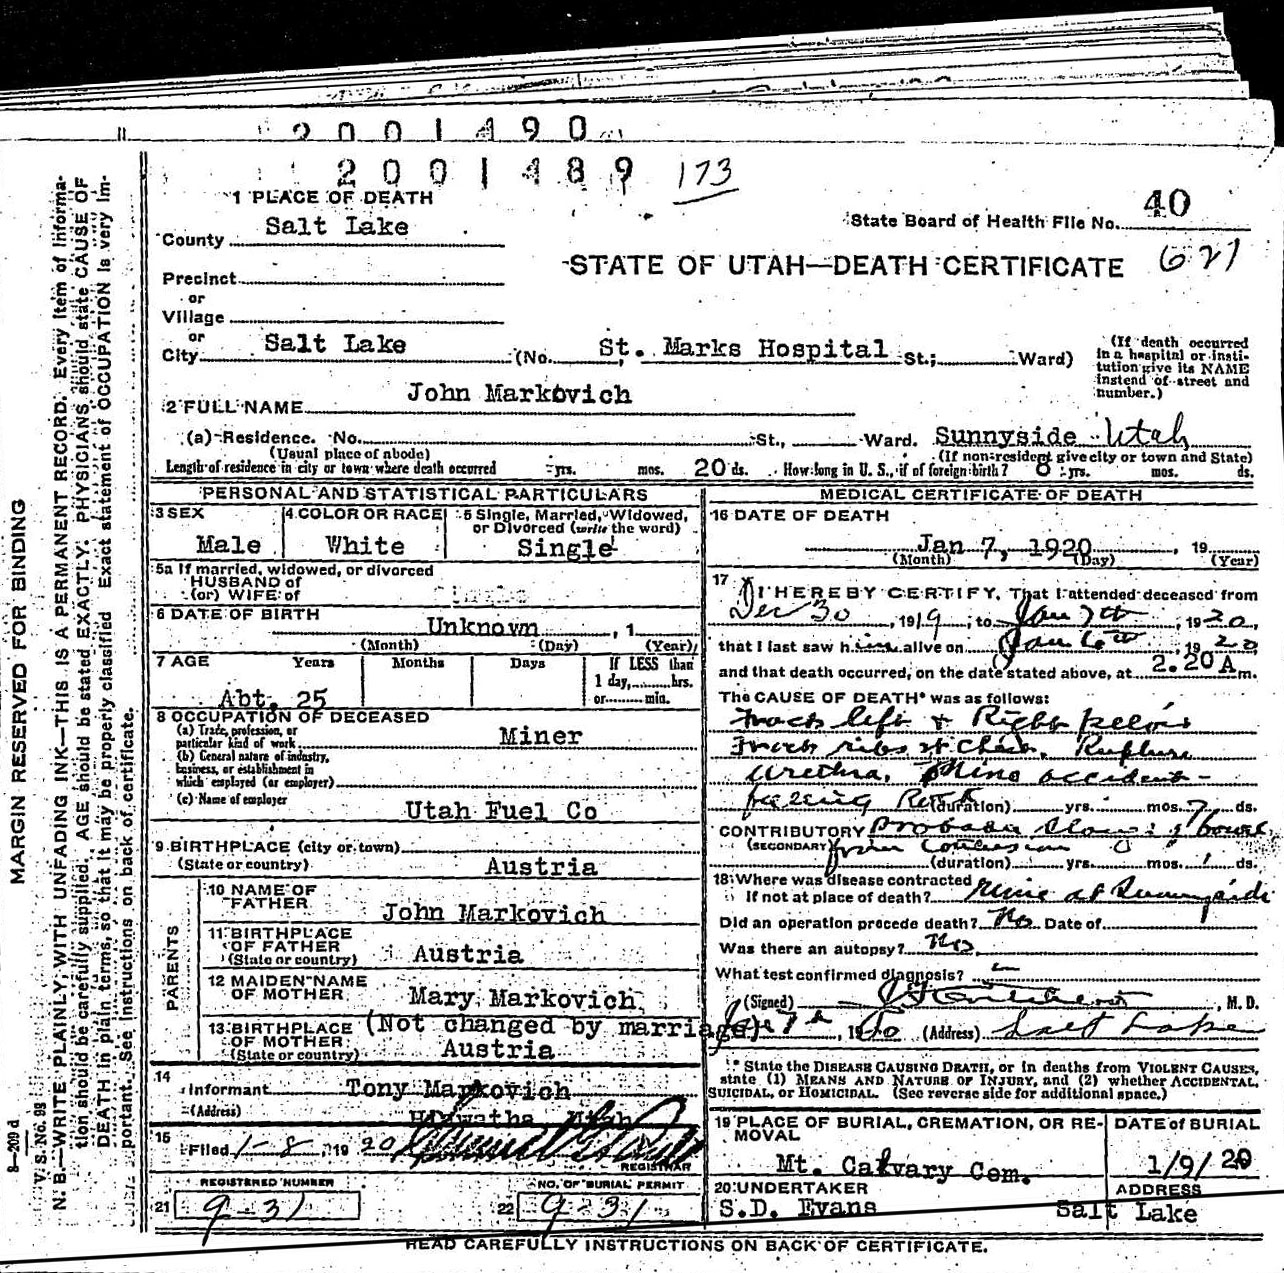 2001490
2001489 173
1 PLACE OF DEATH
State Board of Health File No. 40
County Salt Lake
STATE OF UTAH—DEATH CERTIFICATE 621
Precinct
or
Village
or
City Salt Lake (No. St. Marks Hospital St.; Ward)
(If death occurred in a hospital or institution give its NAME instead of street and number.)
2 FULL NAME John Markovich
(a) Residence. No. St., Ward. Sunnyside Utah
(Usual place of abode) (If non-resident give city or town and State)
Length of residence in city or town where death occurred yrs. mos. 20 ds. How long in U. S., if of foreign birth? 8 yrs. mos. ds.
PERSONAL AND STATISTICAL PARTICULARS
3 SEX Male
4 COLOR OR RACE White
5 Single, Married, Widowed, or Divorced (write the word) Single
5a If married, widowed, or divorced
HUSBAND of
(or) WIFE of
6 DATE OF BIRTH Unknown , 1
(Month) (Day) (Year)
7 AGE Years Months Days If LESS than
1 day, hrs.
or min.
Abt. 25
8 OCCUPATION OF DECEASED
(a) Trade, profession, or
particular kind of work Miner
(b) General nature of industry,
business, or establishment in
which employed (or employer)
(c) Name of employer Utah Fuel Co
9 BIRTHPLACE (city or town)
(State or country) Austria
PARENTS
10 NAME OF FATHER John Markovich
11 BIRTHPLACE OF FATHER
(State or country) Austria
12 MAIDEN NAME OF MOTHER Mary Markovich
(Not changed by marriage)
13 BIRTHPLACE OF MOTHER
(State or country) Austria
14
Informant Tony Markovich
(Address) Hiawatha, Utah
15
Filed 1-8, 1920
REGISTRAR
REGISTERED NUMBER
21 9-31
NO. OF BURIAL PERMIT
22 9-31
MEDICAL CERTIFICATE OF DEATH
16 DATE OF DEATH
Jan 7, 1920 , 19
(Month) (Day) (Year)
17 I HEREBY CERTIFY, That I attended deceased from
Dec 30, 1919, to Jan 7th, 1920,
that I last saw him alive on Jan 6th 1920
and that death occurred, on the date stated above, at 2.20 A m.
The CAUSE OF DEATH* was as follows:
Frach left + Right pelvis
Frach ribs Rupture
urethra, Mine accident-
(duration) yrs. mos. 7 ds.
CONTRIBUTORY of bowel
(SECONDARY) from
(duration) yrs. mos. 1 ds.
18 Where was disease contracted
If not at place of death? Mine at Sunnyside
Did an operation precede death? No Date of
Was there an autopsy? No.
What test confirmed diagnosis?
(Signed) , M. D.
7th, 1920 (Address) Salt Lake
* State the DISEASE CAUSING DEATH, or in deaths from VIOLENT CAUSES,
state (1) MEANS AND NATURE OF INJURY, and (2) whether ACCIDENTAL,
SUICIDAL, or HOMICIDAL. (See reverse side for additional space.)
19 PLACE OF BURIAL, CREMATION, OR REMOVAL
Mt. Calvary Cem.
DATE of BURIAL
1/9/ 20
20 UNDERTAKER
S.D. Evans
ADDRESS
Salt Lake
READ CAREFULLY INSTRUCTIONS ON BACK OF CERTIFICATE.
MARGIN RESERVED FOR BINDING
8—209 d
V. S. No. 99
N. B.—WRITE PLAINLY, WITH UNFADING INK—THIS IS A PERMANENT RECORD. Every item of informa-
tion should be carefully supplied. AGE should be stated EXACTLY. PHYSICIANS should state CAUSE OF
DEATH in plain terms, so that it may be properly classified. Exact statement of OCCUPATION is very im-
portant. See instructions on back of certificate.